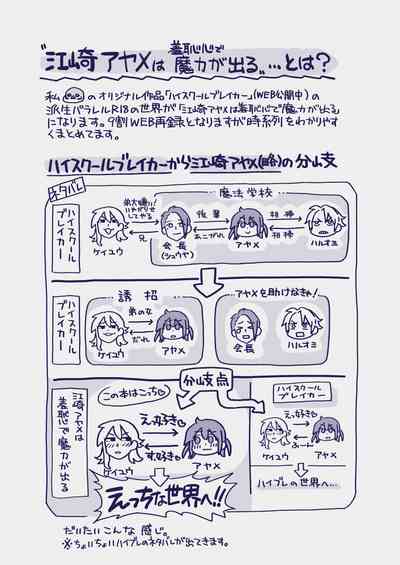 "江崎アヤメは羞恥心で魔力が出る"…とは?
私のオリジナル作品「ハイスクールブレイカー」(WEB公開中)の
派生パラレルR18の世界が「江崎アヤメは羞恥心で魔力が出る」
になります。9割WEB再録となりますが時系列をわかりやす
くまとめてます。
ハイスクールブレイカーから江崎アヤメ(略)の分岐
ネタバレ
ハイスクールブレイカー
魔法学校
弟大嫌い!
いやがらせ
してやる
兄
ケイユウ
会長
(シュウヤ)
後輩
あこがれ
アヤメ
相棒
相棒
ハルオミ
ハイスクールブレイカー
誘招
ケイユウ
弟の女
だれ
アヤメ
アヤメを助けなきゃ!
会長
ハルオミ
分岐点
江崎アヤメは羞恥心で魔力が出る
この本はこっち
えっ好き
す、好き
ケイユウ
アヤメ
えっちな世界へ!!
ハイスクール
ブレイカー
えっ好き
ふーん
ケイユウ
アヤメ
ハイブレの世界へ…
だいたいこんな感じ。
※ちょいちょいハイブレのネタバレが出てきます。